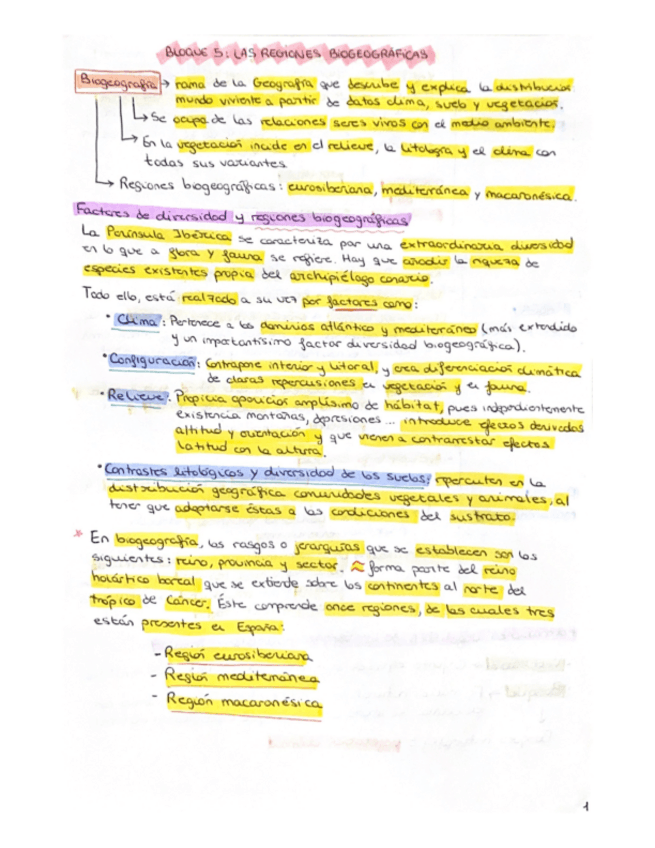 BLOQUE 5: LAS REGIONES BIOGEOGRÁFICAS
Biogeografía → rama de la Geografía que describe y explica la distribución
mundo viviente a partir de datos clima, suelo y vegetación.
↳ Se ocupa de las relaciones seres vivos con el medio ambiente.
→ En la vegetación incide en el relieve, la litología y el clima con
todas sus variantes
→ Regiones biogeográficas: eurosiberiana, mediterránea y macaronésica.
Factores de diversidad y regiones biogeográficas
La Península Ibérica se caracteriza por una extraordinaria diversidad
en lo que a flora y fauna se refiere. Hay que añadir la riqueza de
especies existentes propia del archipiélago canario.
Todo ello, está realzado a su vez por factores como:
• Clima: Pertenece a los dominios atlántico y mediterráneo (más extendido
y un importantísimo factor diversidad biogeográfica).
• Configuración: Contrapone interior y litoral, y crea diferenciación climática
de claras repercusiones en vegetación y en fauna.
• Relieve: Propicia aparición amplísimo de hábitat, pues independientemente
existencia montañas, depresiones... introduce efectos derivados
altitud y orientación y que vienen a contrarrestar efectos
latitud con la altura.
• Contrastes litológicos y diversidad de los suelos: repercuten en la
distribución geográfica comunidades vegetales y animales, al
tener que adaptarse éstas a las condiciones del sustrato.
* En biogeografía, los rasgos o jerarquías que se establecen son los
siguientes: reino, provincia y sector. ≈ forma parte del reino
holártico boreal que se extiende sobre los continentes al norte del
trópico de Cáncer. Éste comprende once regiones, de las cuales tres
están presentes en España:
- Región eurosiberiana
- Región mediterránea
- Región macaronésica
1